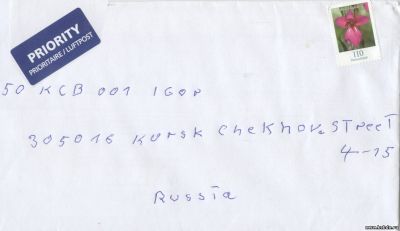 PRIORITY
PRIORITAIRE / LUFTPOST
110
50 KCB 001 IGOR
305016 KURSK CheKhov. STreeT
4-15
RUSSIa